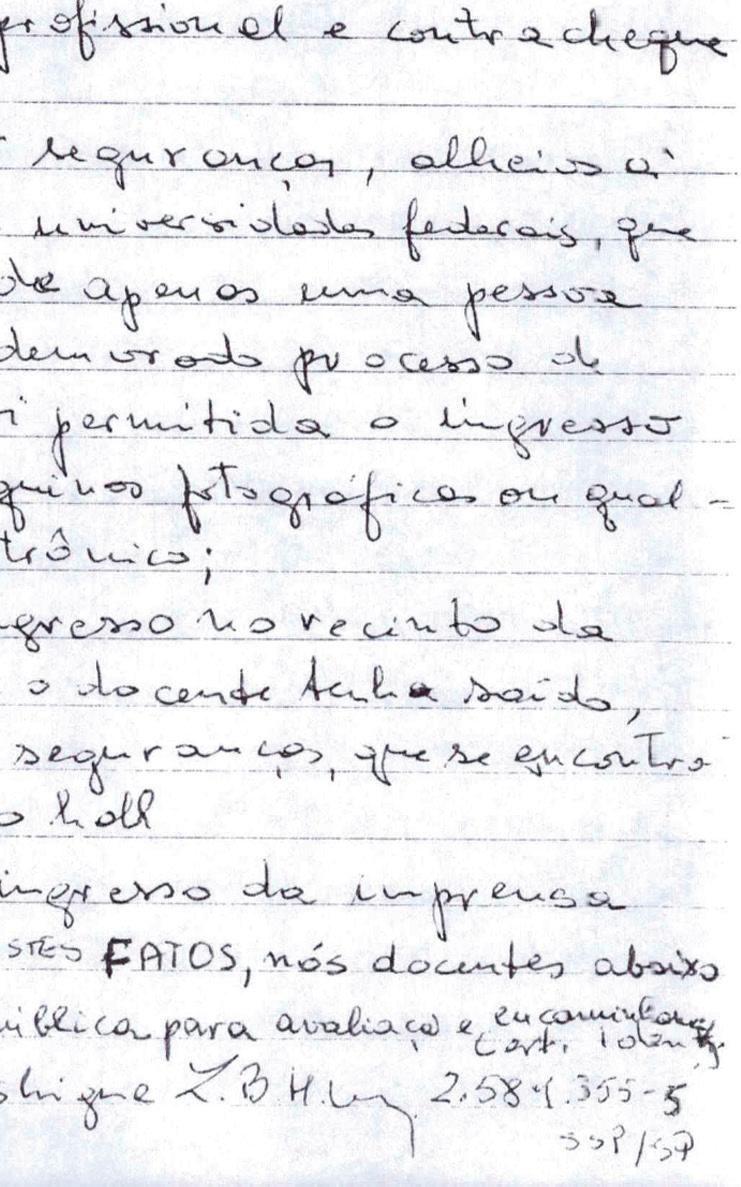 profissional e contracheque
seguranças, alheios à
universidades federais, que
de apenas uma pessoa
demorado processo de
i permitida o ingresso
quinas fotográficas ou qual-
trônico;
gresso no recinto da
o docente tenha saído,
seguranças, que se encontra
o hall
ingresso da imprensa
STES FATOS, nós docentes abaixo
ública para avaliaçõ e encaminhar
Cart. Identi
shigue Z.B.H. 2.584.355-5
SSP/SP